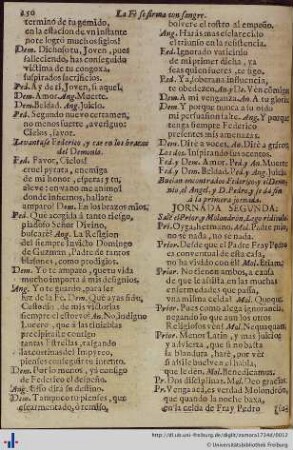 250 La Fè se firma con sangre.
termino de tu gemido,
en la estacion de vn instante
pote logrò muchos siglos!
Dem. Dichoso tu, Joven, pues
falleciendo, has conseguido
victima de tu congoxa,
suspirados sacrificios.
Ped. Ay de mi, Joven, si aquel,
Dem. Amor. Ang. Muerte.
Dem. Beldad. Ang. Juicio.
Ped. Segundo nuevo certamen,
no menos fuerte, averiguo:
Cielos, favor.
Levantase Federico, y cae en los brazos
del Demonio.
Fed. Favor, Cielos!
cruel pyrata, enemiga
de mi honor, espera; y tu,
eleve: en vano me animo!
donde infiernos, hallarè
amparo? Dem. En los brazos mios,
Ped. Què acogida à tanto riesgo,
piadoso Señor Divino,
buscarè? Ang. La Religion
del siempre Invicto Domingo
de Guzman, Padre de tantos
blasones, como prodigios.
Dem. Yo te amparo, que tu vida
mucho importa à mis designios.
Ang. Yo te guardo, para ser
luz de la Fè. Dem. Què ayas sido,
Custodio, de mis victorias
siempre el estorvo! Ang. No, indigno
Lucero, que à las tinieblas
precipitaste contigo
tantas Estrellas, raigando
las continuidades del Impyreo,
pienses conseguir tu intento.
Dem. Por lo menos, yo consigo
de Federico el despeño.
Ang. Esso dirà su destino.
Dem. Tampoco tu pienses, que
escarmentado, ò remiso,
bolverè el rostro al empeño.
Ang. Haràs mas esclarecido
el triunfo en la resistencia.
Fed. Ignorado vaticinio
de mi primer dicha, ya
seas quien fueres, te sigo.
Ped. Ya, deidad, tu influencia
no resisto. Ang. y Dem. Vèn conmigo.
Dem. A mi venganza. Ang. A tu gloria.
Dem. Y porque nunca à su oido
mi persuasion falte. Ang. Y porque
tenga siempre Federico
presentes mis amenazas.
Dem. Dirè à voces. Ang. Dirè à gritos.
Los dos. Inspirando sus acentos.
Fed. y Dem. Amor. Ped. y Ang. Muerte
Fed. y Dem. Beldad. Ped. y Ang. Juicio.
Buelan encontrados Federico, y el Demonio,
el Angel, y D. Pedro, y se dà fin
à la primera jornada.
JORNADA SEGVNDA:
Sale el Prior, y Molondron, Lego ridiculo.
Pri. Oyga, hermano. Mol. Padre mio,
no se nada, no se nada.
Prior. Desde que el Padre Fray Pedro
es conventual de esta casa,
no ha vivido con èl? Mol. Etiam;
Prior. No tienen ambos, à causa
de que la assista en las muchas
enfermedades que passa,
vna misma celda? Mol. Quoque.
Prior. Pues como alega ignorancia,
negando lo que aun los otros
Religiosos ven? Mol. Nequaquam.
Prior. Menos Latin, y mas juicio;
y advierta, que si no basta
la blandura, harè, por ver
si assi se buelve al habla,
que le dèn. Mol. Benedicamus.
Pr. Dos disciplinas. Mol. Deo gracias.
Pr. Venga acà, es verdad Molondron,
que la noche passada,
en la celda de Fray Pedro
http://dl.ub.uni-freiburg.de/diglit/zamora1734d/0012
© Universitätsbibliothek Freiburg